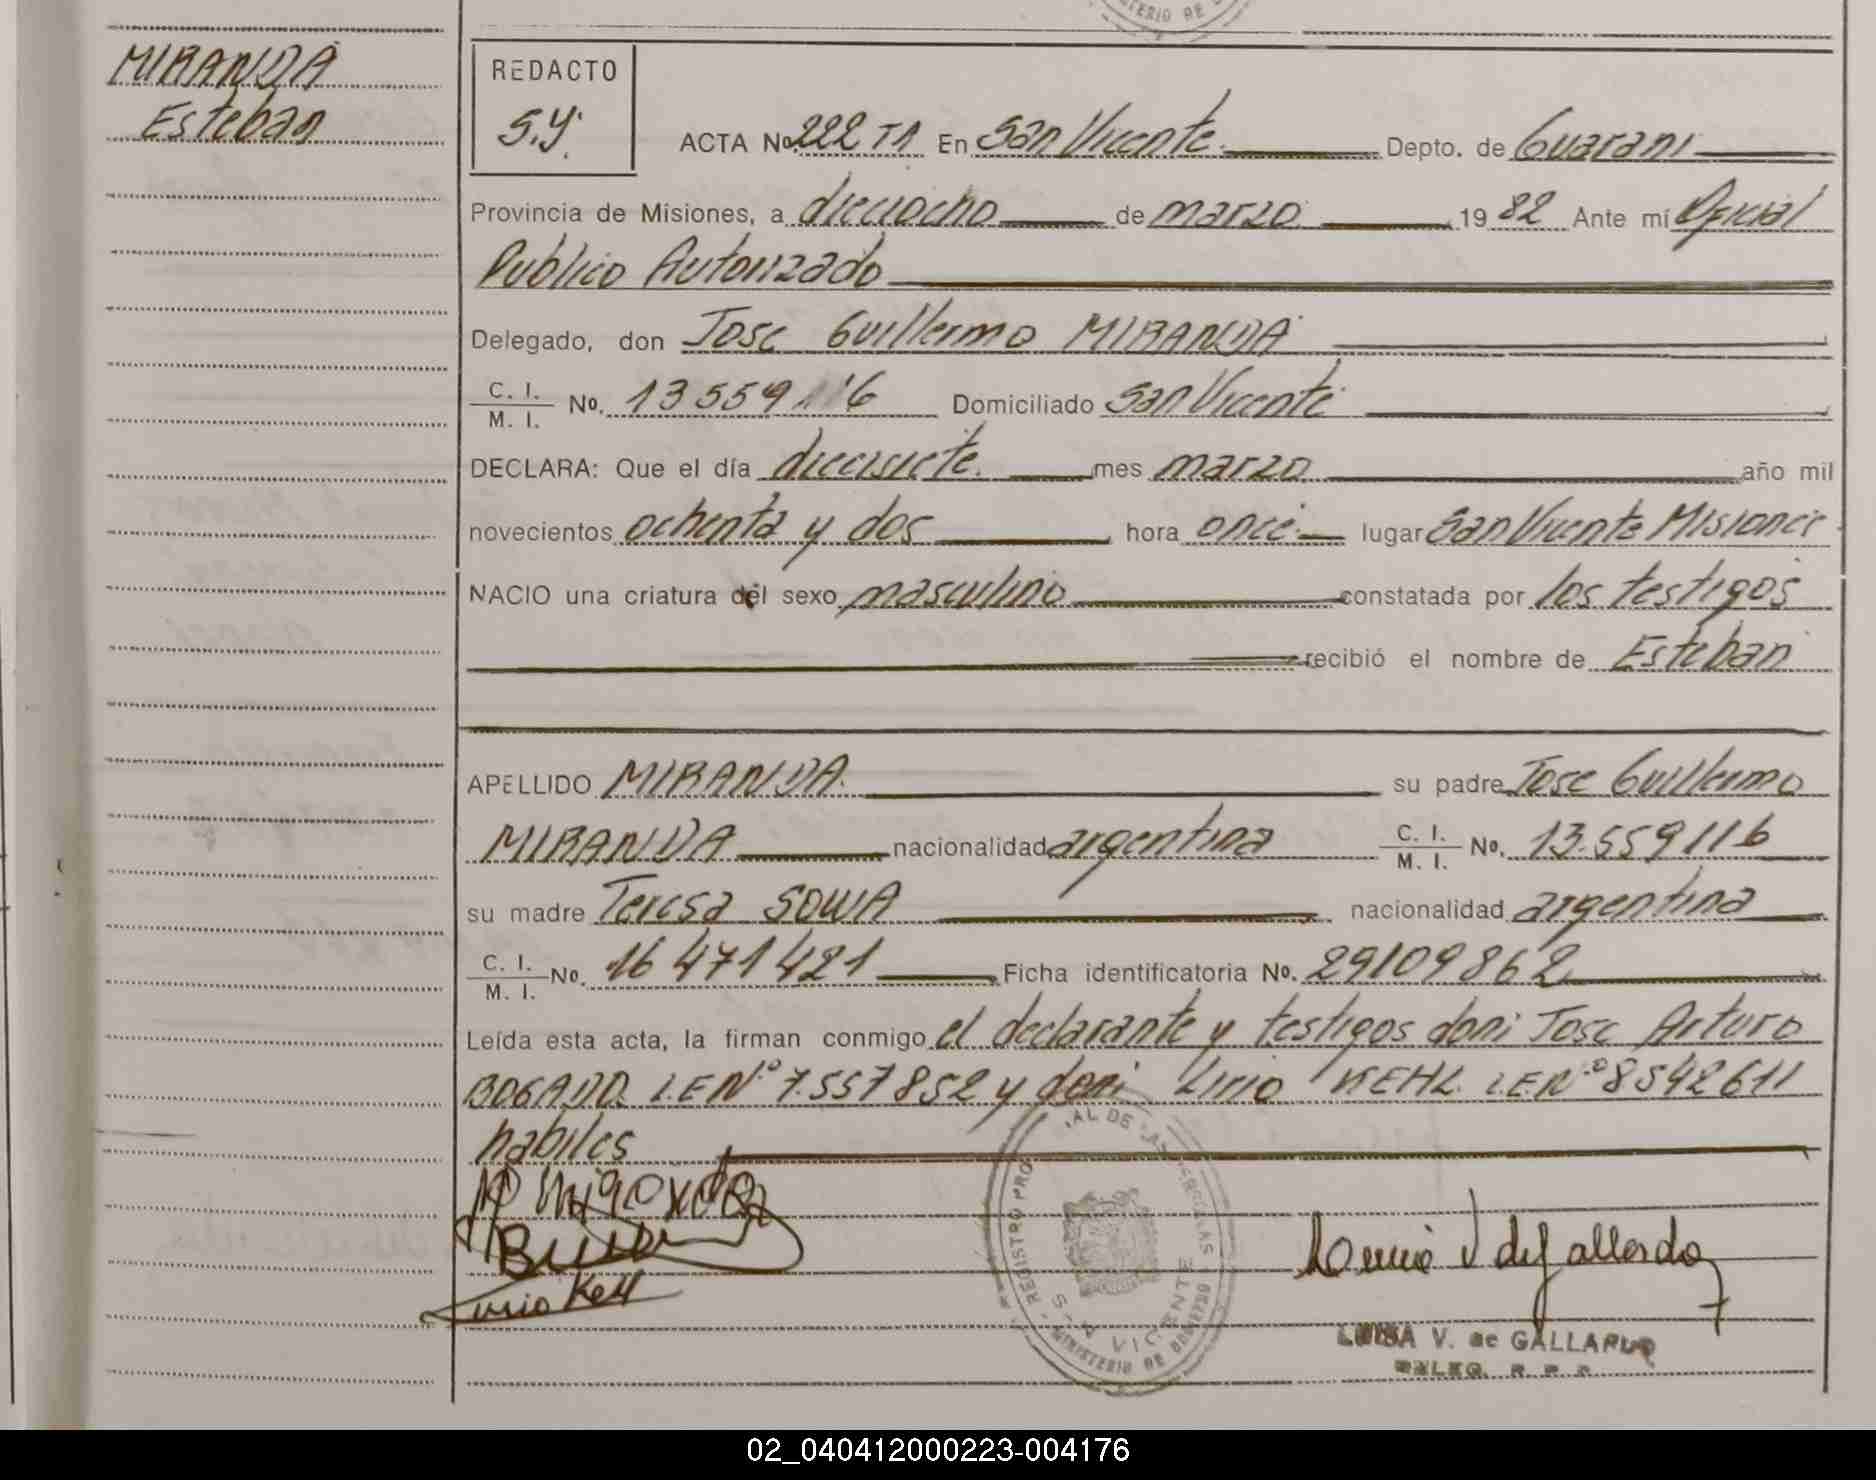 MIRANDA
Esteban
REDACTO
S.Y.
ACTA No. 222 TA En San Vicente Depto. de Guarani
Provincia de Misiones, a dieciocho de marzo 19 82 Ante mí Oficial
Publico Autorizado
Delegado, don Jose Guillermo MIRANDA
C. I.
M. I. No. 13559116 Domiciliado San Vicente
DECLARA: Que el día diecisiete mes marzo año mil
novecientos ochenta y dos hora once lugar San Vicente Misiones
NACIO una criatura del sexo masculino constatada por los testigos
recibió el nombre de Esteban
APELLIDO MIRANDA su padre Jose Guillermo
MIRANDA nacionalidad argentina C. I. M. I. No. 13.559116
su madre Teresa SOWA nacionalidad argentina
C. I. M. I. No. 16471421 Ficha identificatoria No. 29109862
Leída esta acta, la firman conmigo el declarante y testigos don: Jose Arturo
BOGADO L.E.Nº 7.557852 y don: Lirio KEHL L.E.Nº 8542611
habiles
REGISTRO AL DE LAS PERSONAS
VICENTE
MINISTERIO DE GOBIERNO
LUISA V. de GALLARDO
DELEG. R. P. P.
02_040412000223-004176